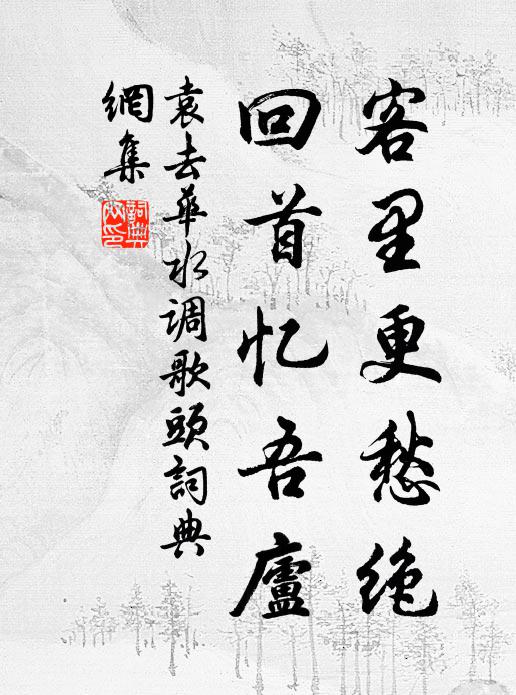 客里更愁绝
回首忆吾廬
袁去華水调歌頭詞典
網集
詞典網印